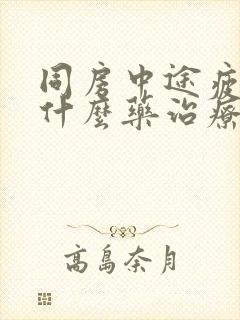 同房中途疲
什麼藥治療
高島奈月